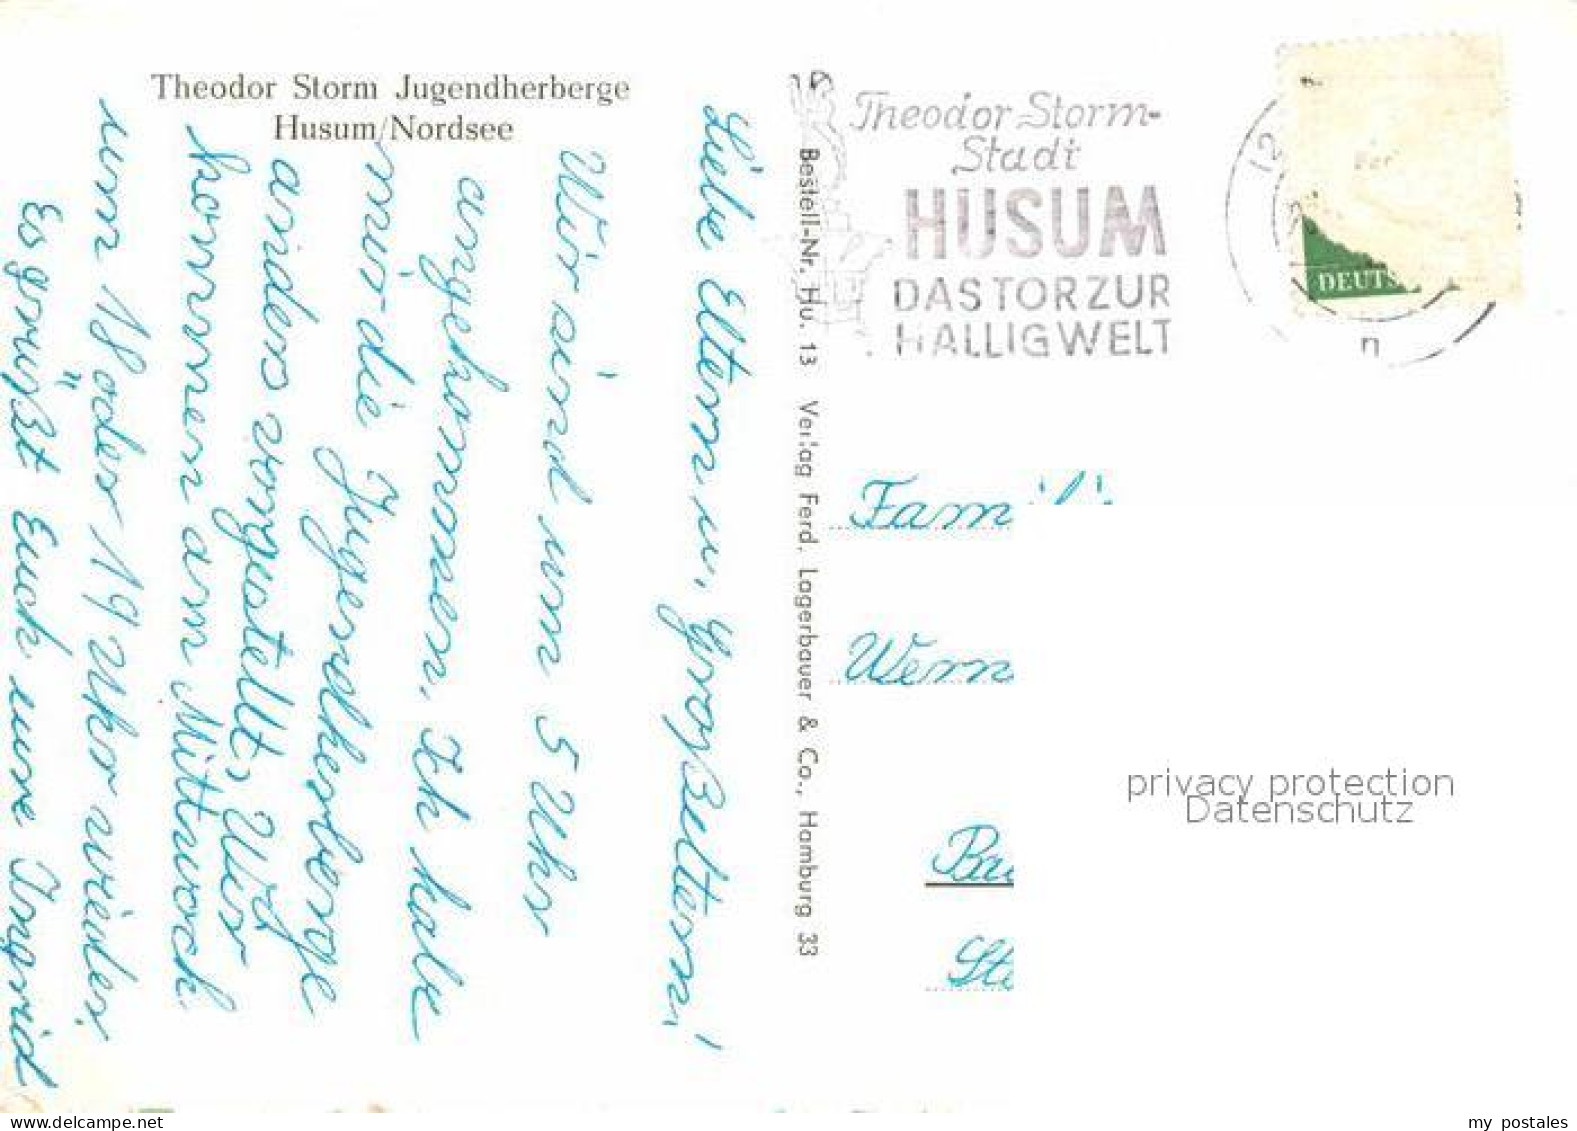 Theodor Storm Jugendherberge
Husum/Nordsee
Liebe Eltern u. Großeltern!
Wir sind um 5 Uhr
angekommen. Ich habe
mir die Jugendherberge
anders vorgestellt. Wir
kommen am Mittwoch
um 18 oder 19 Uhr wieder.
Es grüßt Euch eure Ingrid
Bestell-Nr. Hu. 13 Verlag Ferd. Lagerbauer & Co., Hamburg 33
Theodor Storm-
Stadt
HUSUM
DAS TOR ZUR
HALLIGWELT
12
DEUTS
n
Fam
Wern
Bau
Ste
privacy protection
Datenschutz
my postales